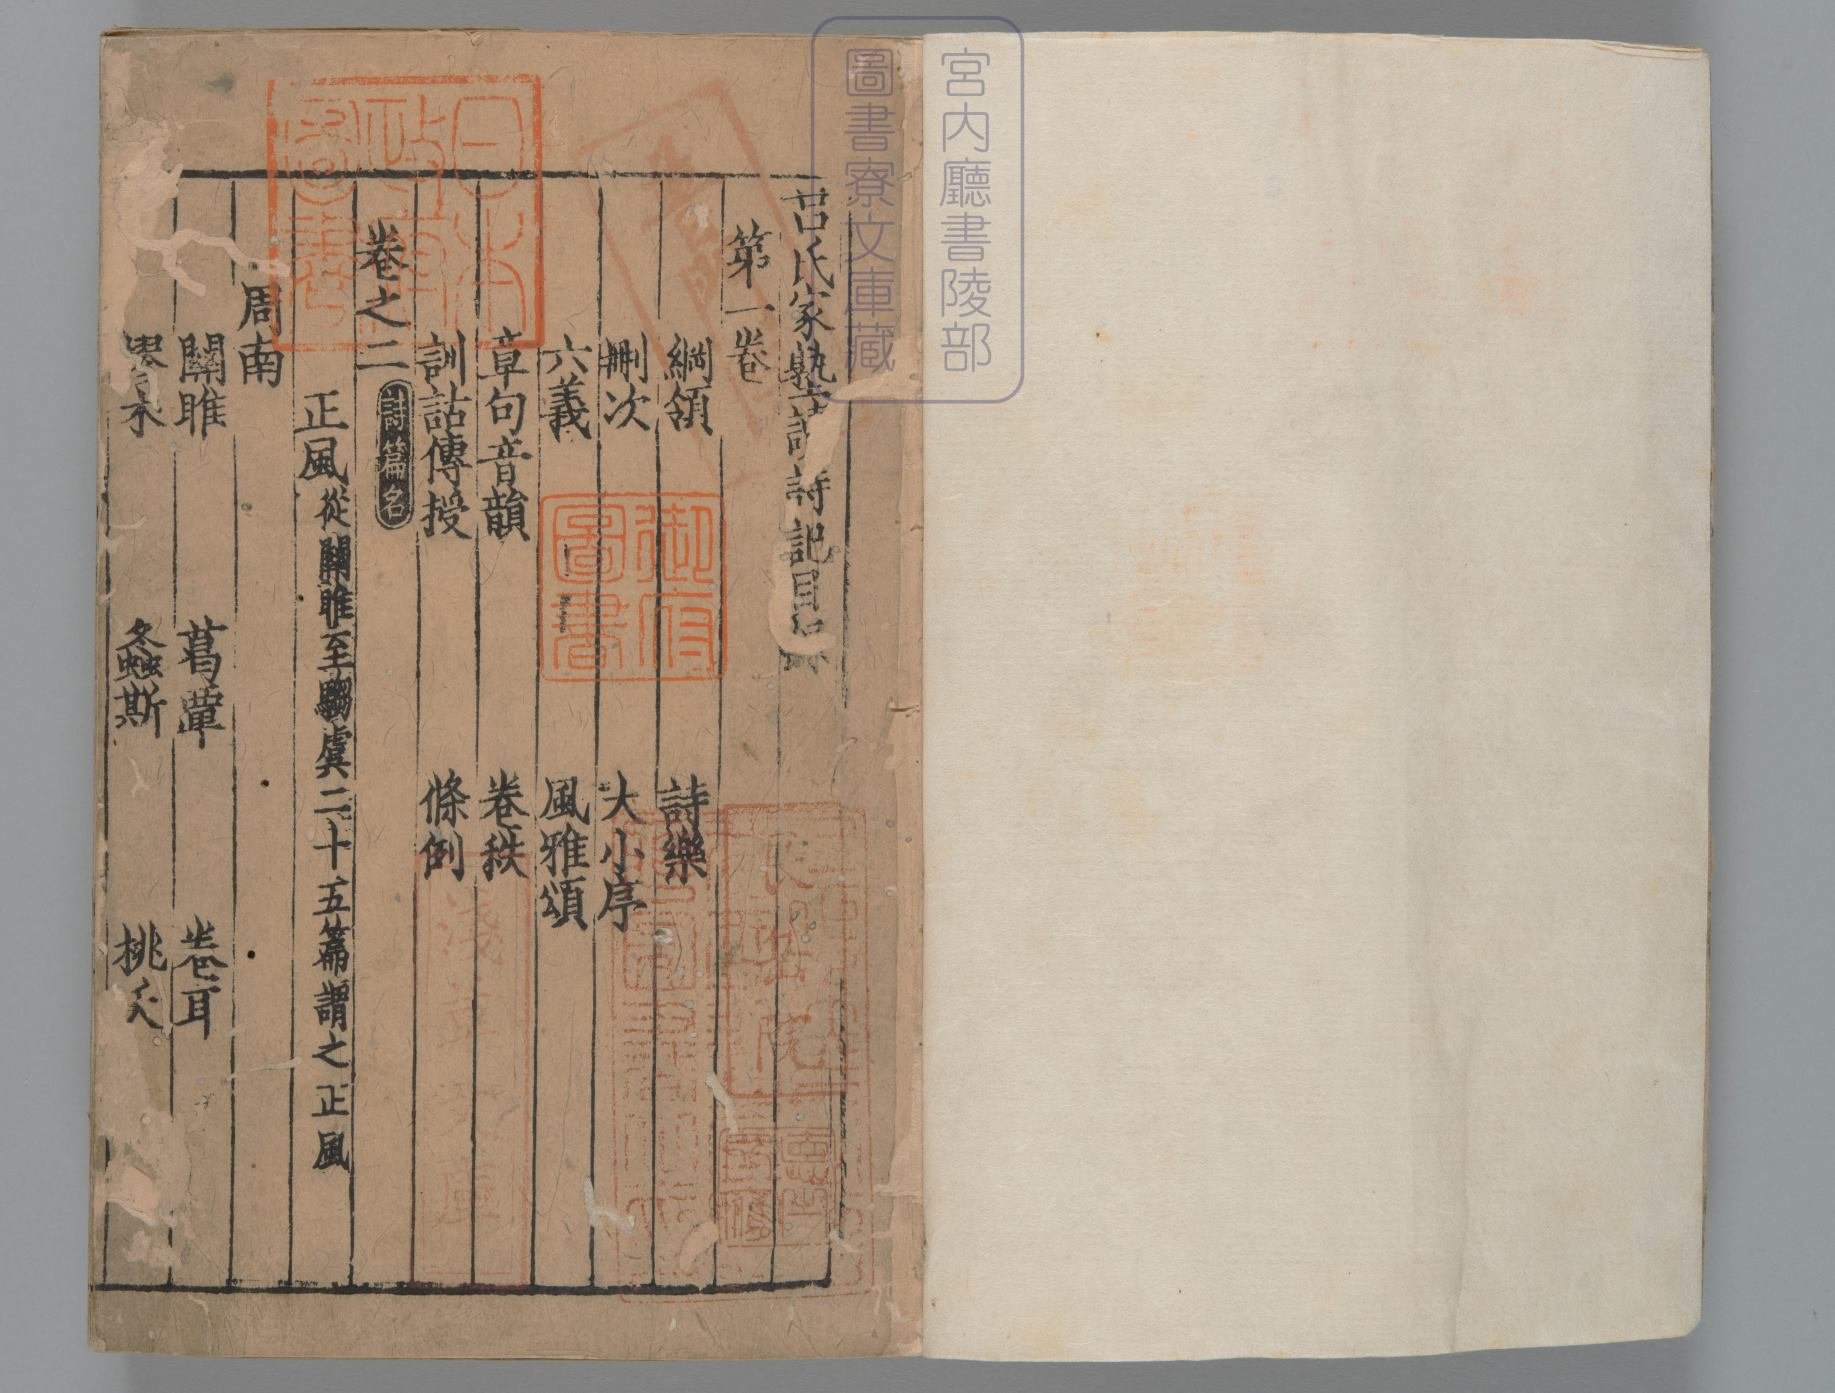 呂氏家塾讀詩記目錄
第一卷
綱領 詩樂
刪次 大小序
六義 風雅頌
章句音韻 卷秩
訓詁傳授 條例
卷之二 詩篇名
正風 從關雎至騶虞二十五篇謂之正風
周南
關雎 葛蕈 卷耳
樛木 螽斯 桃夭
宮內廳書陵部
圖書寮文庫藏
日本
政府
圖書
御府
圖書
淺草文庫